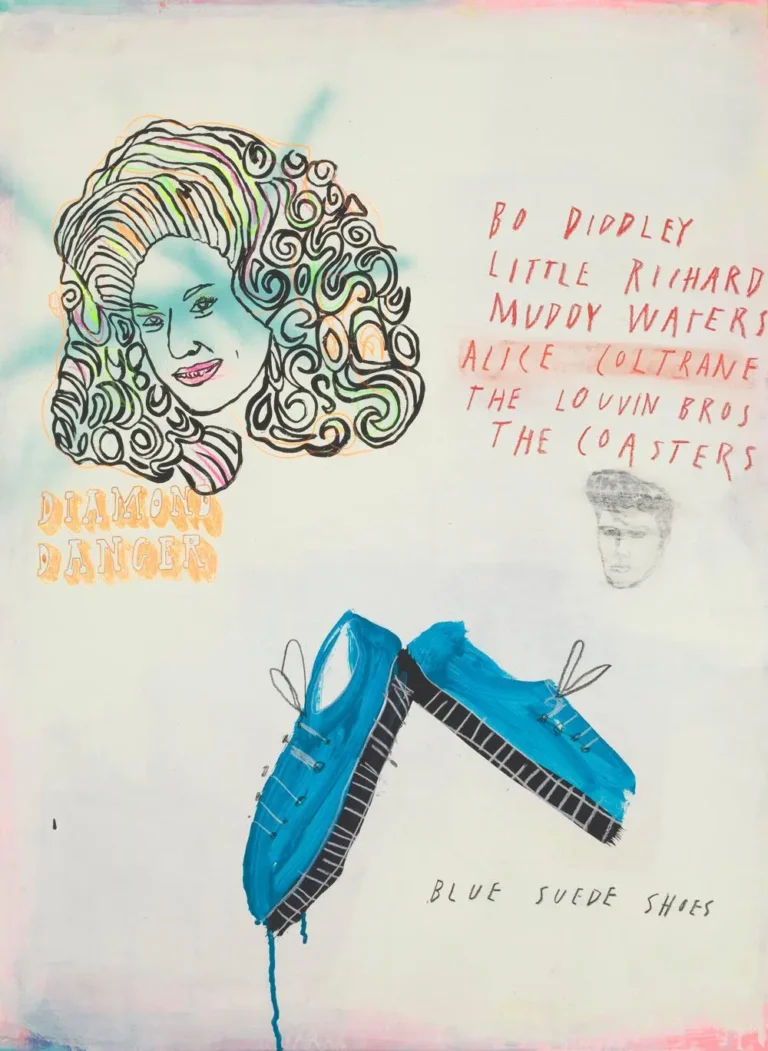 BO DIDDLEY
LITTLE RICHARD
MUDDY WATERS
ALICE COLTRANE
THE LOUVIN BROS
THE COASTERS
DIAMOND
DANGER
BLUE SUEDE SHOES